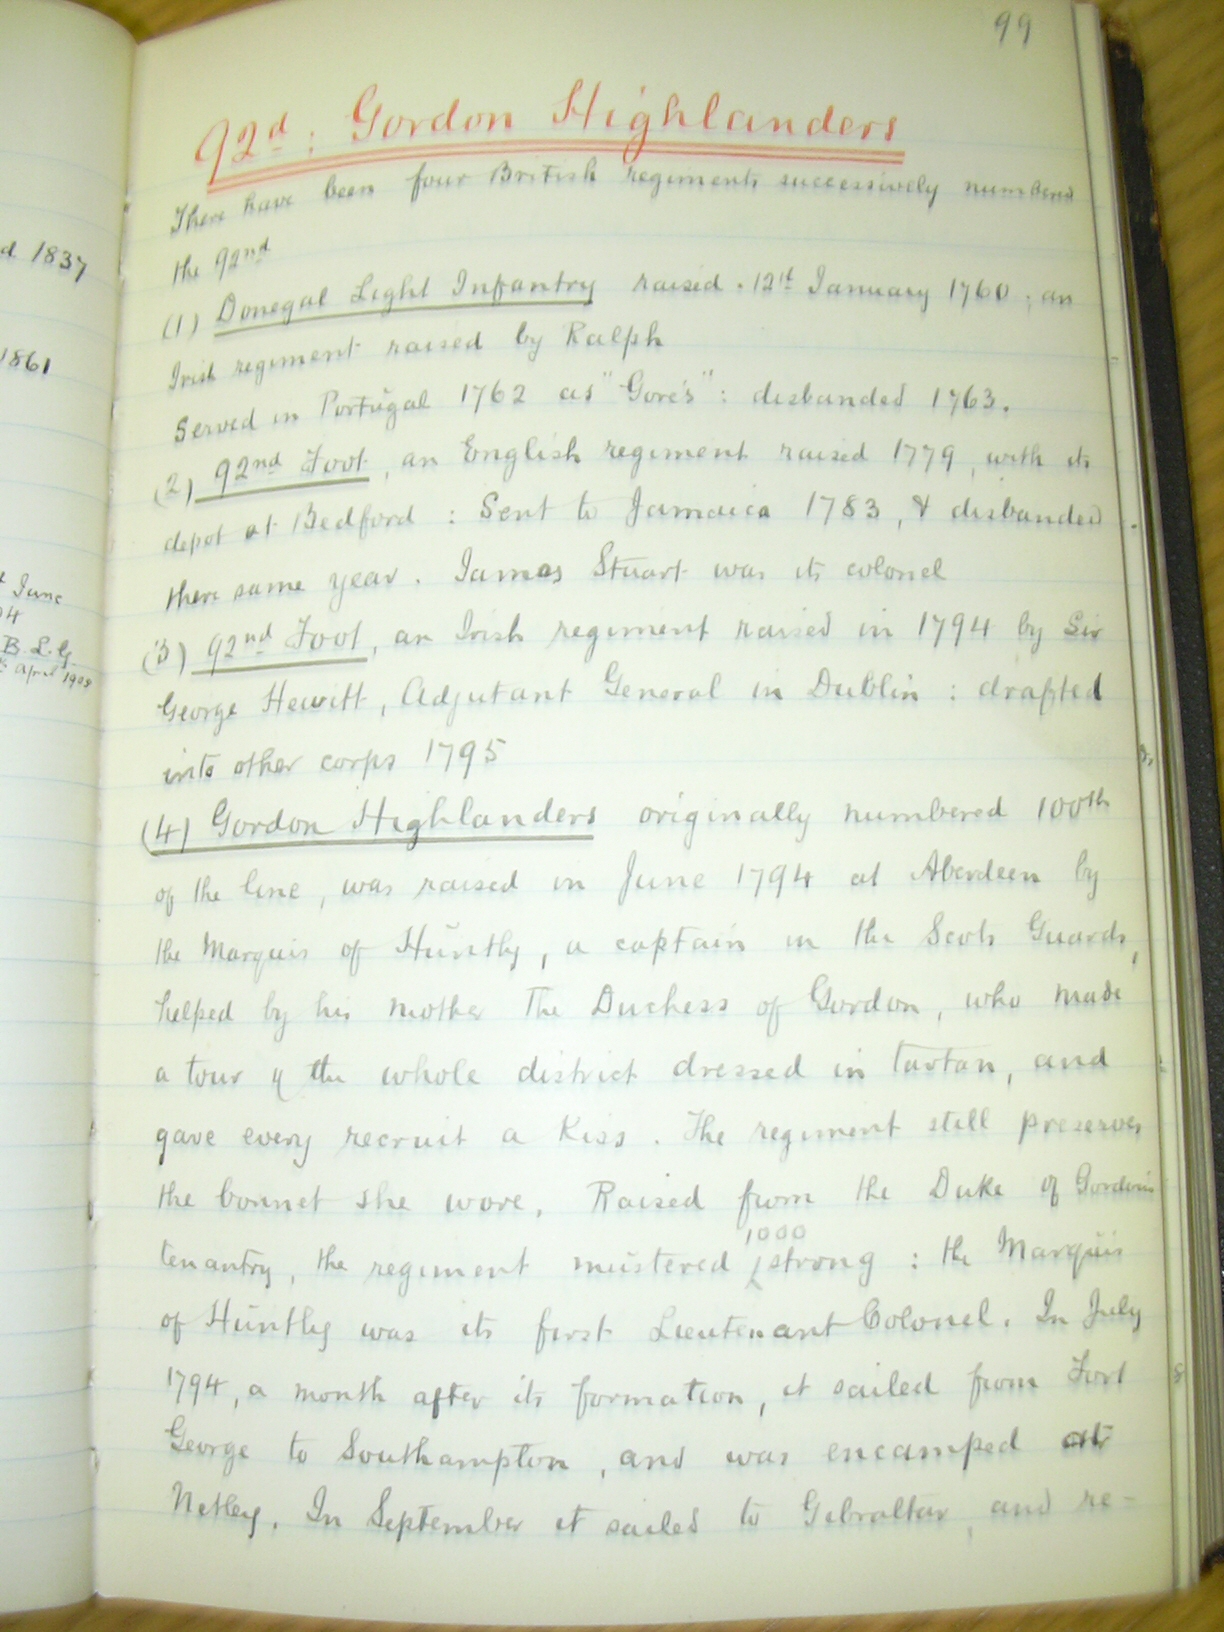 99
d 1837
1861
June
04
B. L. G.
April 1908
92d: Gordon Highlanders
There have been four British regiments successively numbered
the 92nd
(1) Donegal Light Infantry raised . 12th January 1760 ; an
Irish regiment raised by Ralph
Served in Portugal 1762 as "Gore's" : disbanded 1763.
(2) 92nd Foot, an English regiment raised 1779, with its
depot at Bedford : Sent to Jamaica 1783, & disbanded
there same year. James Stuart was its colonel
(3) 92nd Foot, an Irish regiment raised in 1794 by Sir
George Hewitt, Adjutant General in Dublin : drafted
into other corps 1795
(4) Gordon Highlanders originally numbered 100th
of the line, was raised in June 1794 at Aberdeen by
the Marquis of Huntly, a captain in the Scots Guards,
helped by his mother the Duchess of Gordon, who made
a tour of the whole district dressed in tartan, and
gave every recruit a kiss. The regiment still preserves
the bonnet she wore. Raised from the Duke of Gordon's
tenantry, the regiment mustered 1000 strong : the Marquis
of Huntly was its first Lieutenant Colonel. In July
1794, a month after its formation, it sailed from Fort
George to Southampton, and was encamped at
Netley. In September it sailed to Gibraltar, and re-